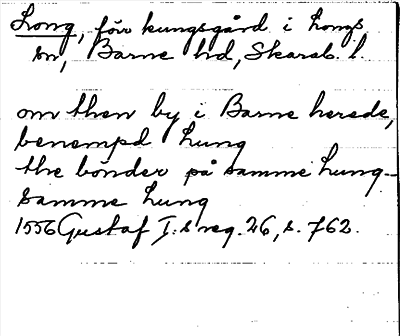 Long, förr kungsgård i Longs
sn, Barne hd, Skarab. l.
om then by i Barne herede,
benempd Lung
the bönder på samme Lung-
samme Lung
1556 Gustaf I:s reg. 26, s. 762.